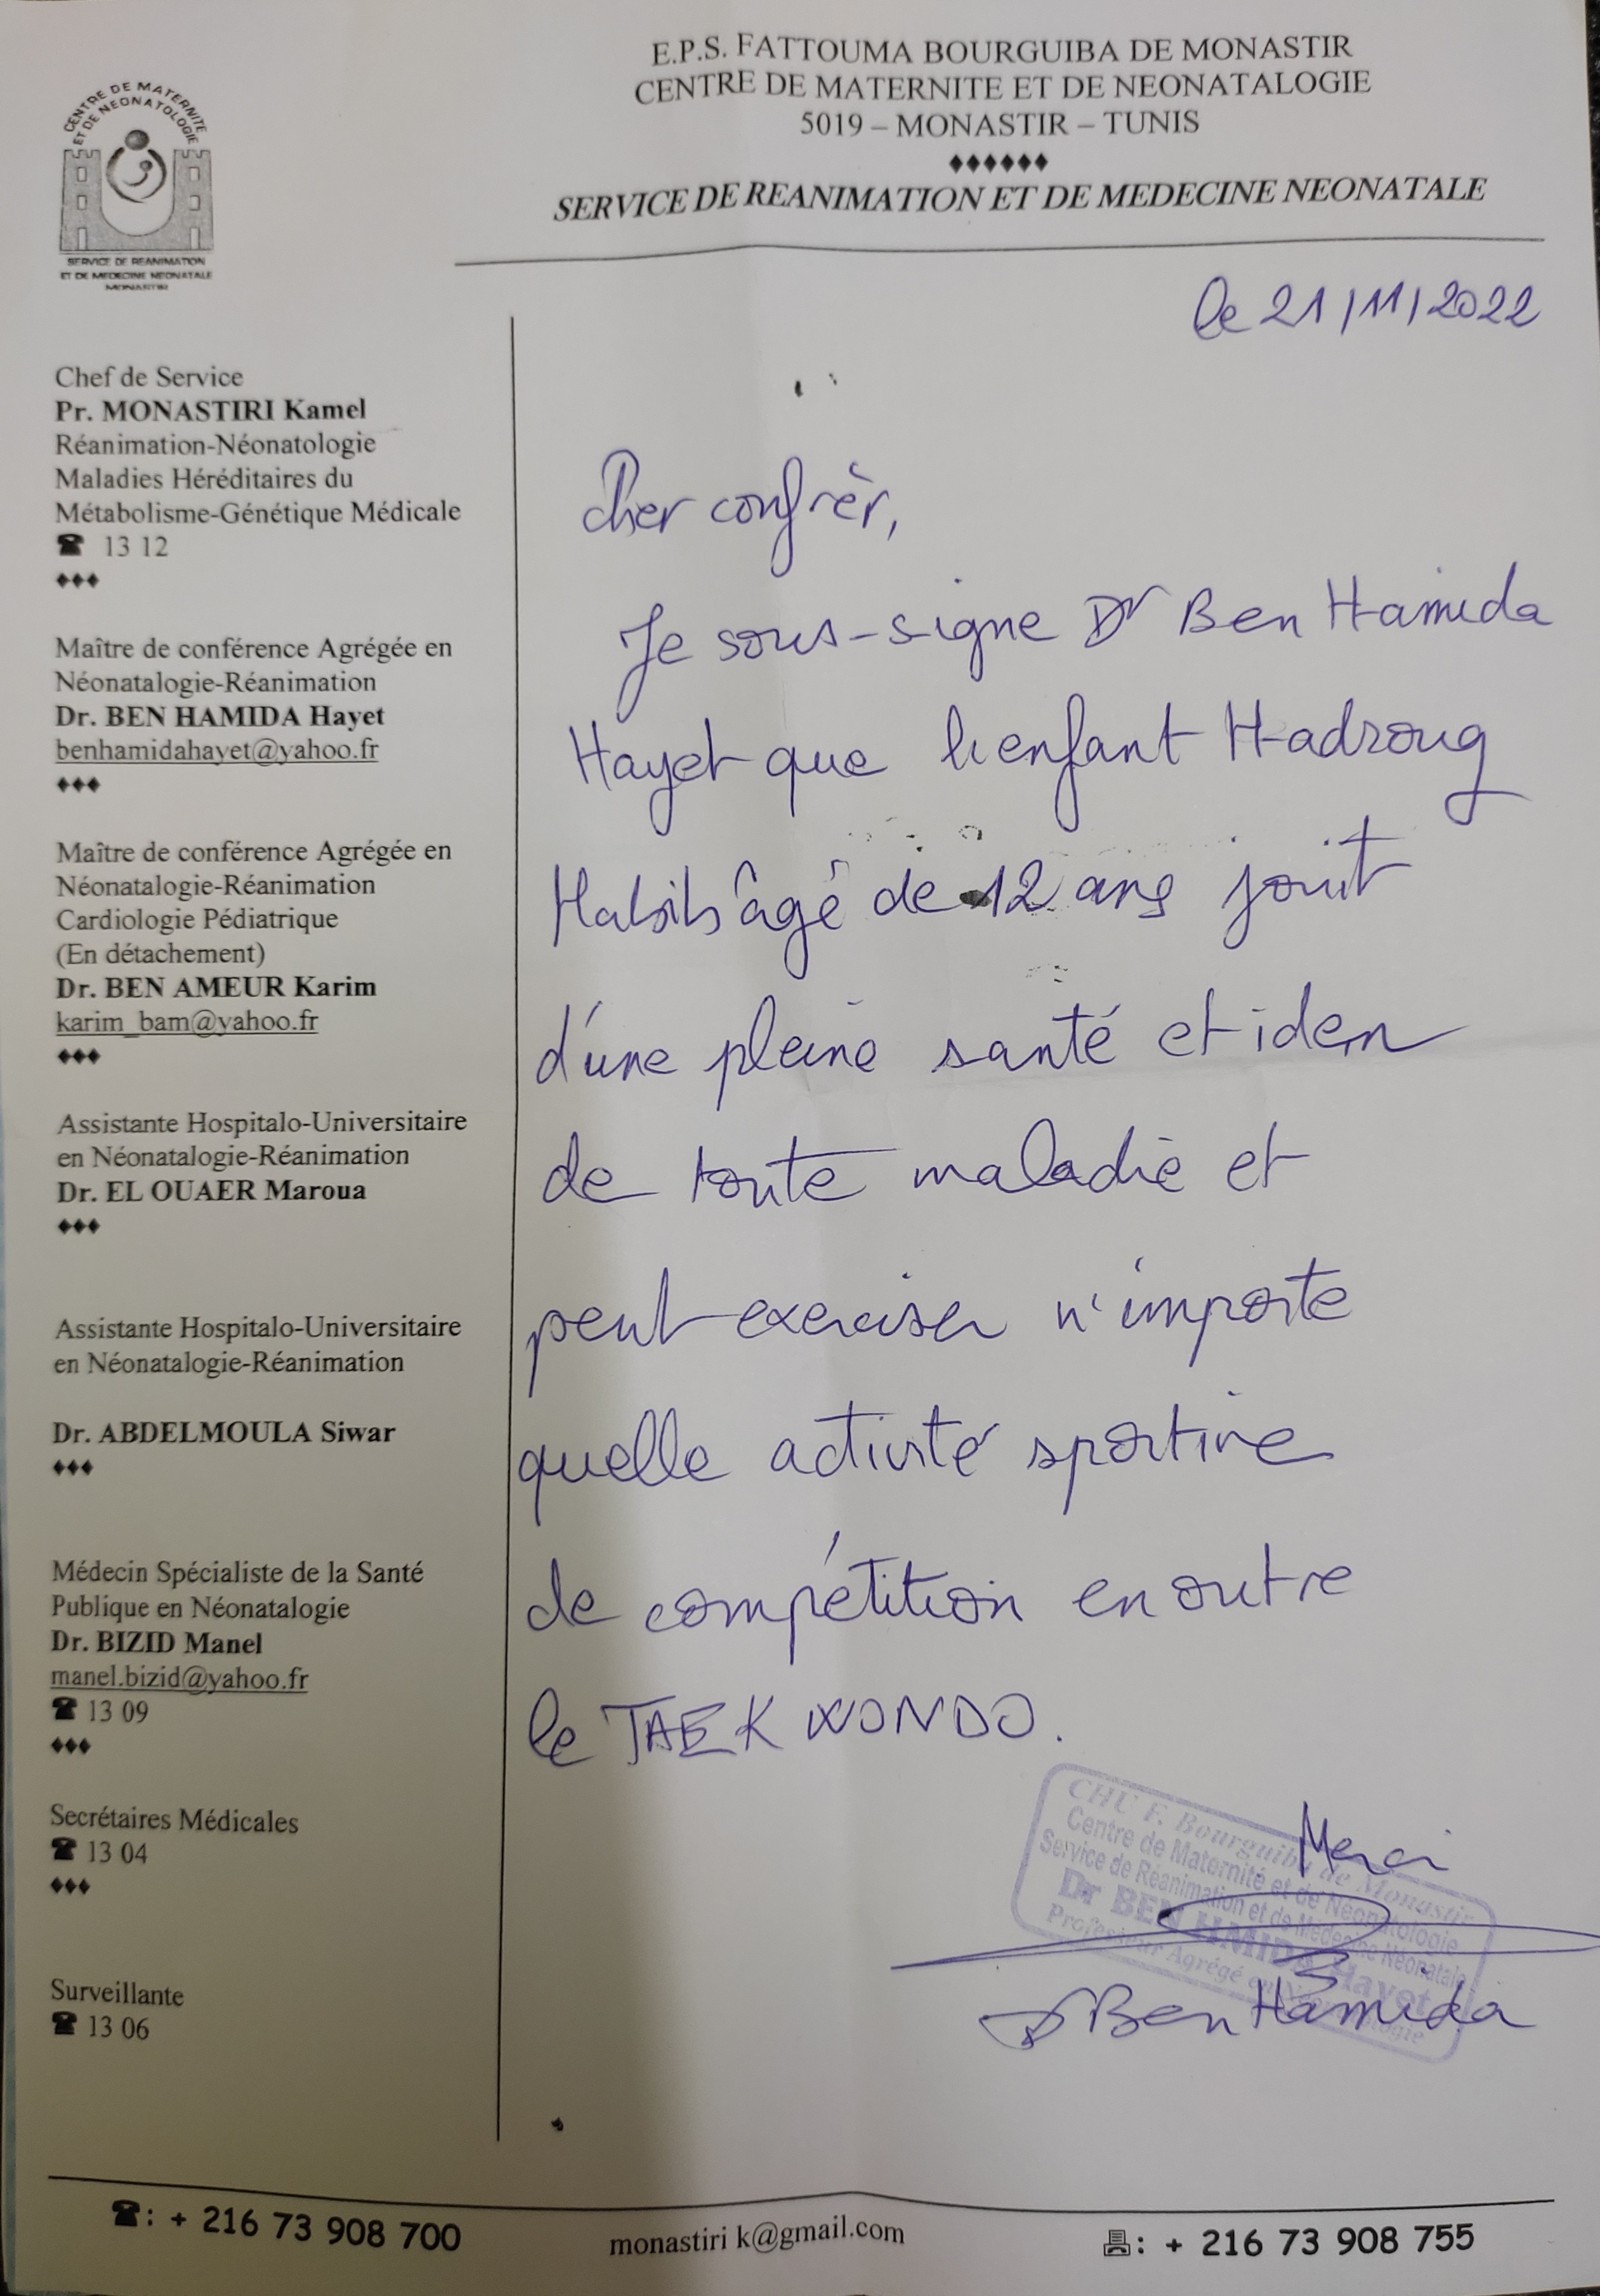 E.P.S. FATTOUMA BOURGUIBA DE MONASTIR
CENTRE DE MATERNITE ET DE NEONATALOGIE
5019 – MONASTIR – TUNIS
♦♦♦♦♦♦
SERVICE DE REANIMATION ET DE MEDECINE NEONATALE
CENTRE DE MATERNITE
ET DE NEONATOLOGIE
SERVICE DE REANIMATION
ET DE MEDECINE NEONATALE
MONASTIR
Chef de Service
Pr. MONASTIRI Kamel
Réanimation-Néonatologie
Maladies Héréditaires du
Métabolisme-Génétique Médicale
☎ 13 12
♦♦♦
Maître de conférence Agrégée en
Néonatalogie-Réanimation
Dr. BEN HAMIDA Hayet
benhamidahayet@yahoo.fr
♦♦♦
Maître de conférence Agrégée en
Néonatalogie-Réanimation
Cardiologie Pédiatrique
(En détachement)
Dr. BEN AMEUR Karim
karim_bam@yahoo.fr
♦♦♦
Assistante Hospitalo-Universitaire
en Néonatalogie-Réanimation
Dr. EL OUAER Maroua
♦♦♦
Assistante Hospitalo-Universitaire
en Néonatalogie-Réanimation
Dr. ABDELMOULA Siwar
♦♦♦
Médecin Spécialiste de la Santé
Publique en Néonatalogie
Dr. BIZID Manel
manel.bizid@yahoo.fr
☎ 13 09
♦♦♦
Secrétaires Médicales
☎ 13 04
♦♦♦
Surveillante
☎ 13 06
le 21/11/2022
Cher confrèr,
Je sous-signe Dr Ben Hamida
Hayet que l'enfant Hadroug
Habib âgé de 12 ans jouit
d'une pleine santé et idem
de toute maladie et
peut exerciser n'importe
quelle activité sportive
de compétition en outre
le TAEKWONDO.
Merci
CHU F. Bourguiba de Monastir
Centre de Maternité et de Néonatologie
Service de Réanimation et de Médecine Néonatale
Dr BEN HMIDA Hayet
Professeur Agrégé en Néonatologie
Ben Hamida
☎: + 216 73 908 700
monastiri k@gmail.com
: + 216 73 908 755